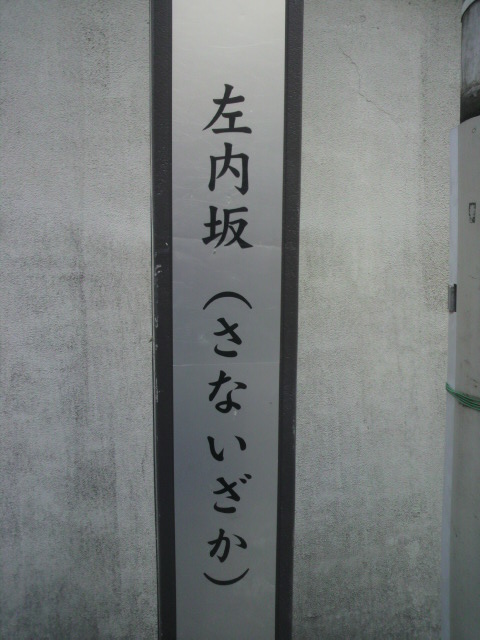 左内坂（さないざか）